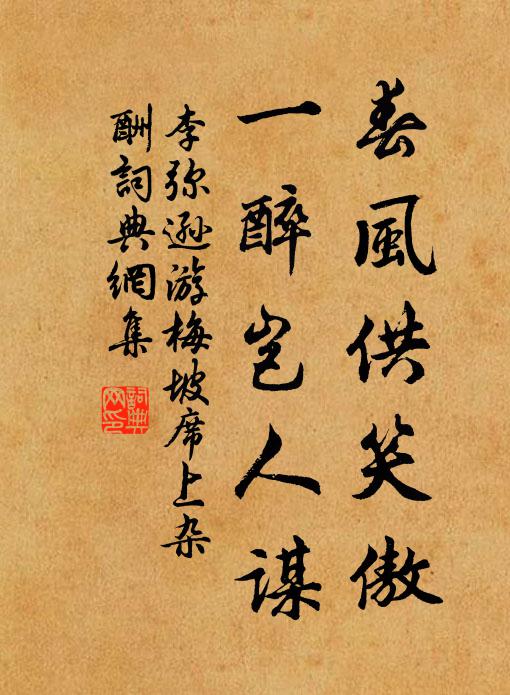 春風供笑傲
一醉岂人謀
李弥逊游梅坡席上杂
酬詞典網集
詞典
网印